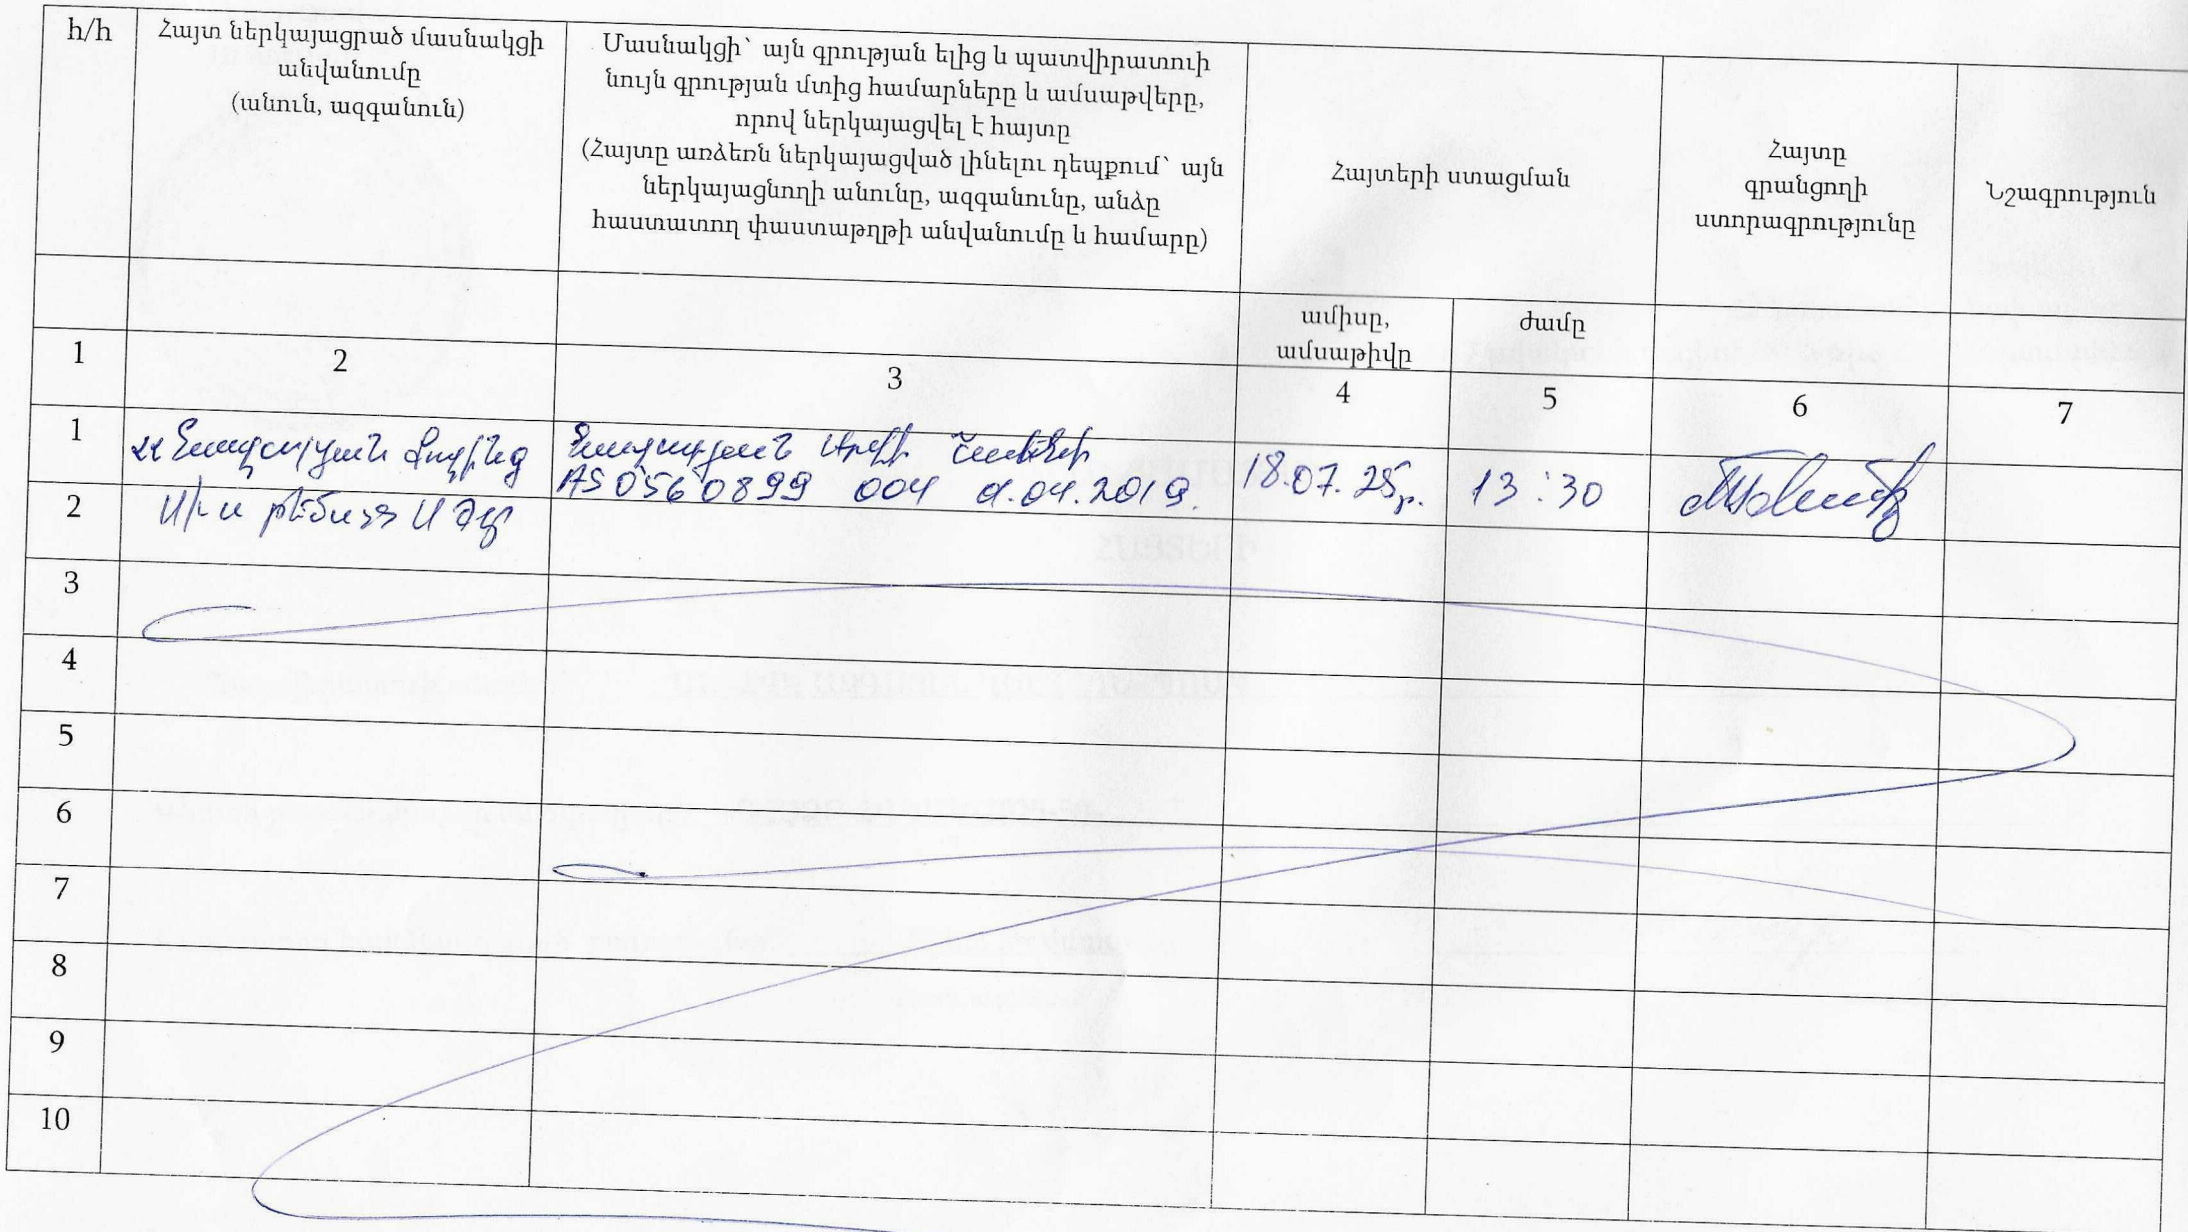 հ/հ
Հայտ ներկայացրած մասնակցի
անվանումը
(անուն, ազգանուն)
Մասնակցի` այն գրության ելից և պատվիրատուի
նույն գրության մտից համարները և ամսաթվերը,
որով ներկայացվել է հայտը
(Հայտը առձեռն ներկայացված լինելու դեպքում` այն
ներկայացնողի անունը, ազգանունը, անձը
հաստատող փաստաթղթի անվանումը և համարը)
Հայտերի ստացման
Հայտը
գրանցողի
ստորագրությունը
Նշագրություն
ամիսը,
ամսաթիվը
ժամը
1
2
3
4
5
6
7
1
AS 0560899 004
04.2019.
18.07.25թ.
13:30
2
3
4
5
6
7
8
9
10